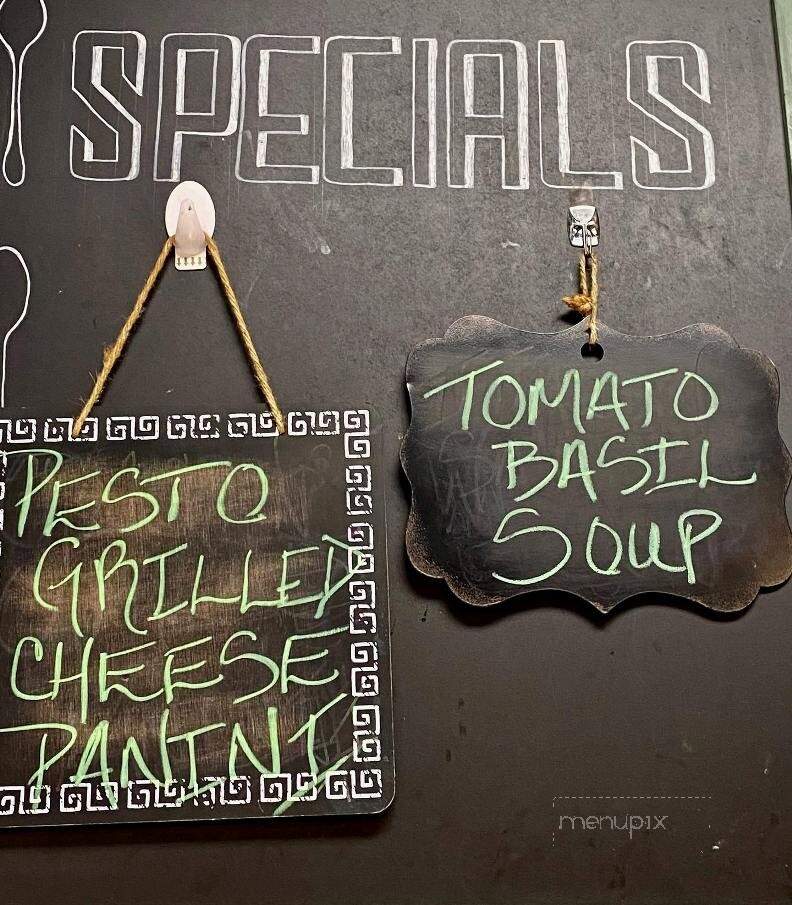 SPECIALS
PESTO
GRILLED
CHEESE
PANINI
TOMATO
BASIL
SOUP
menupix